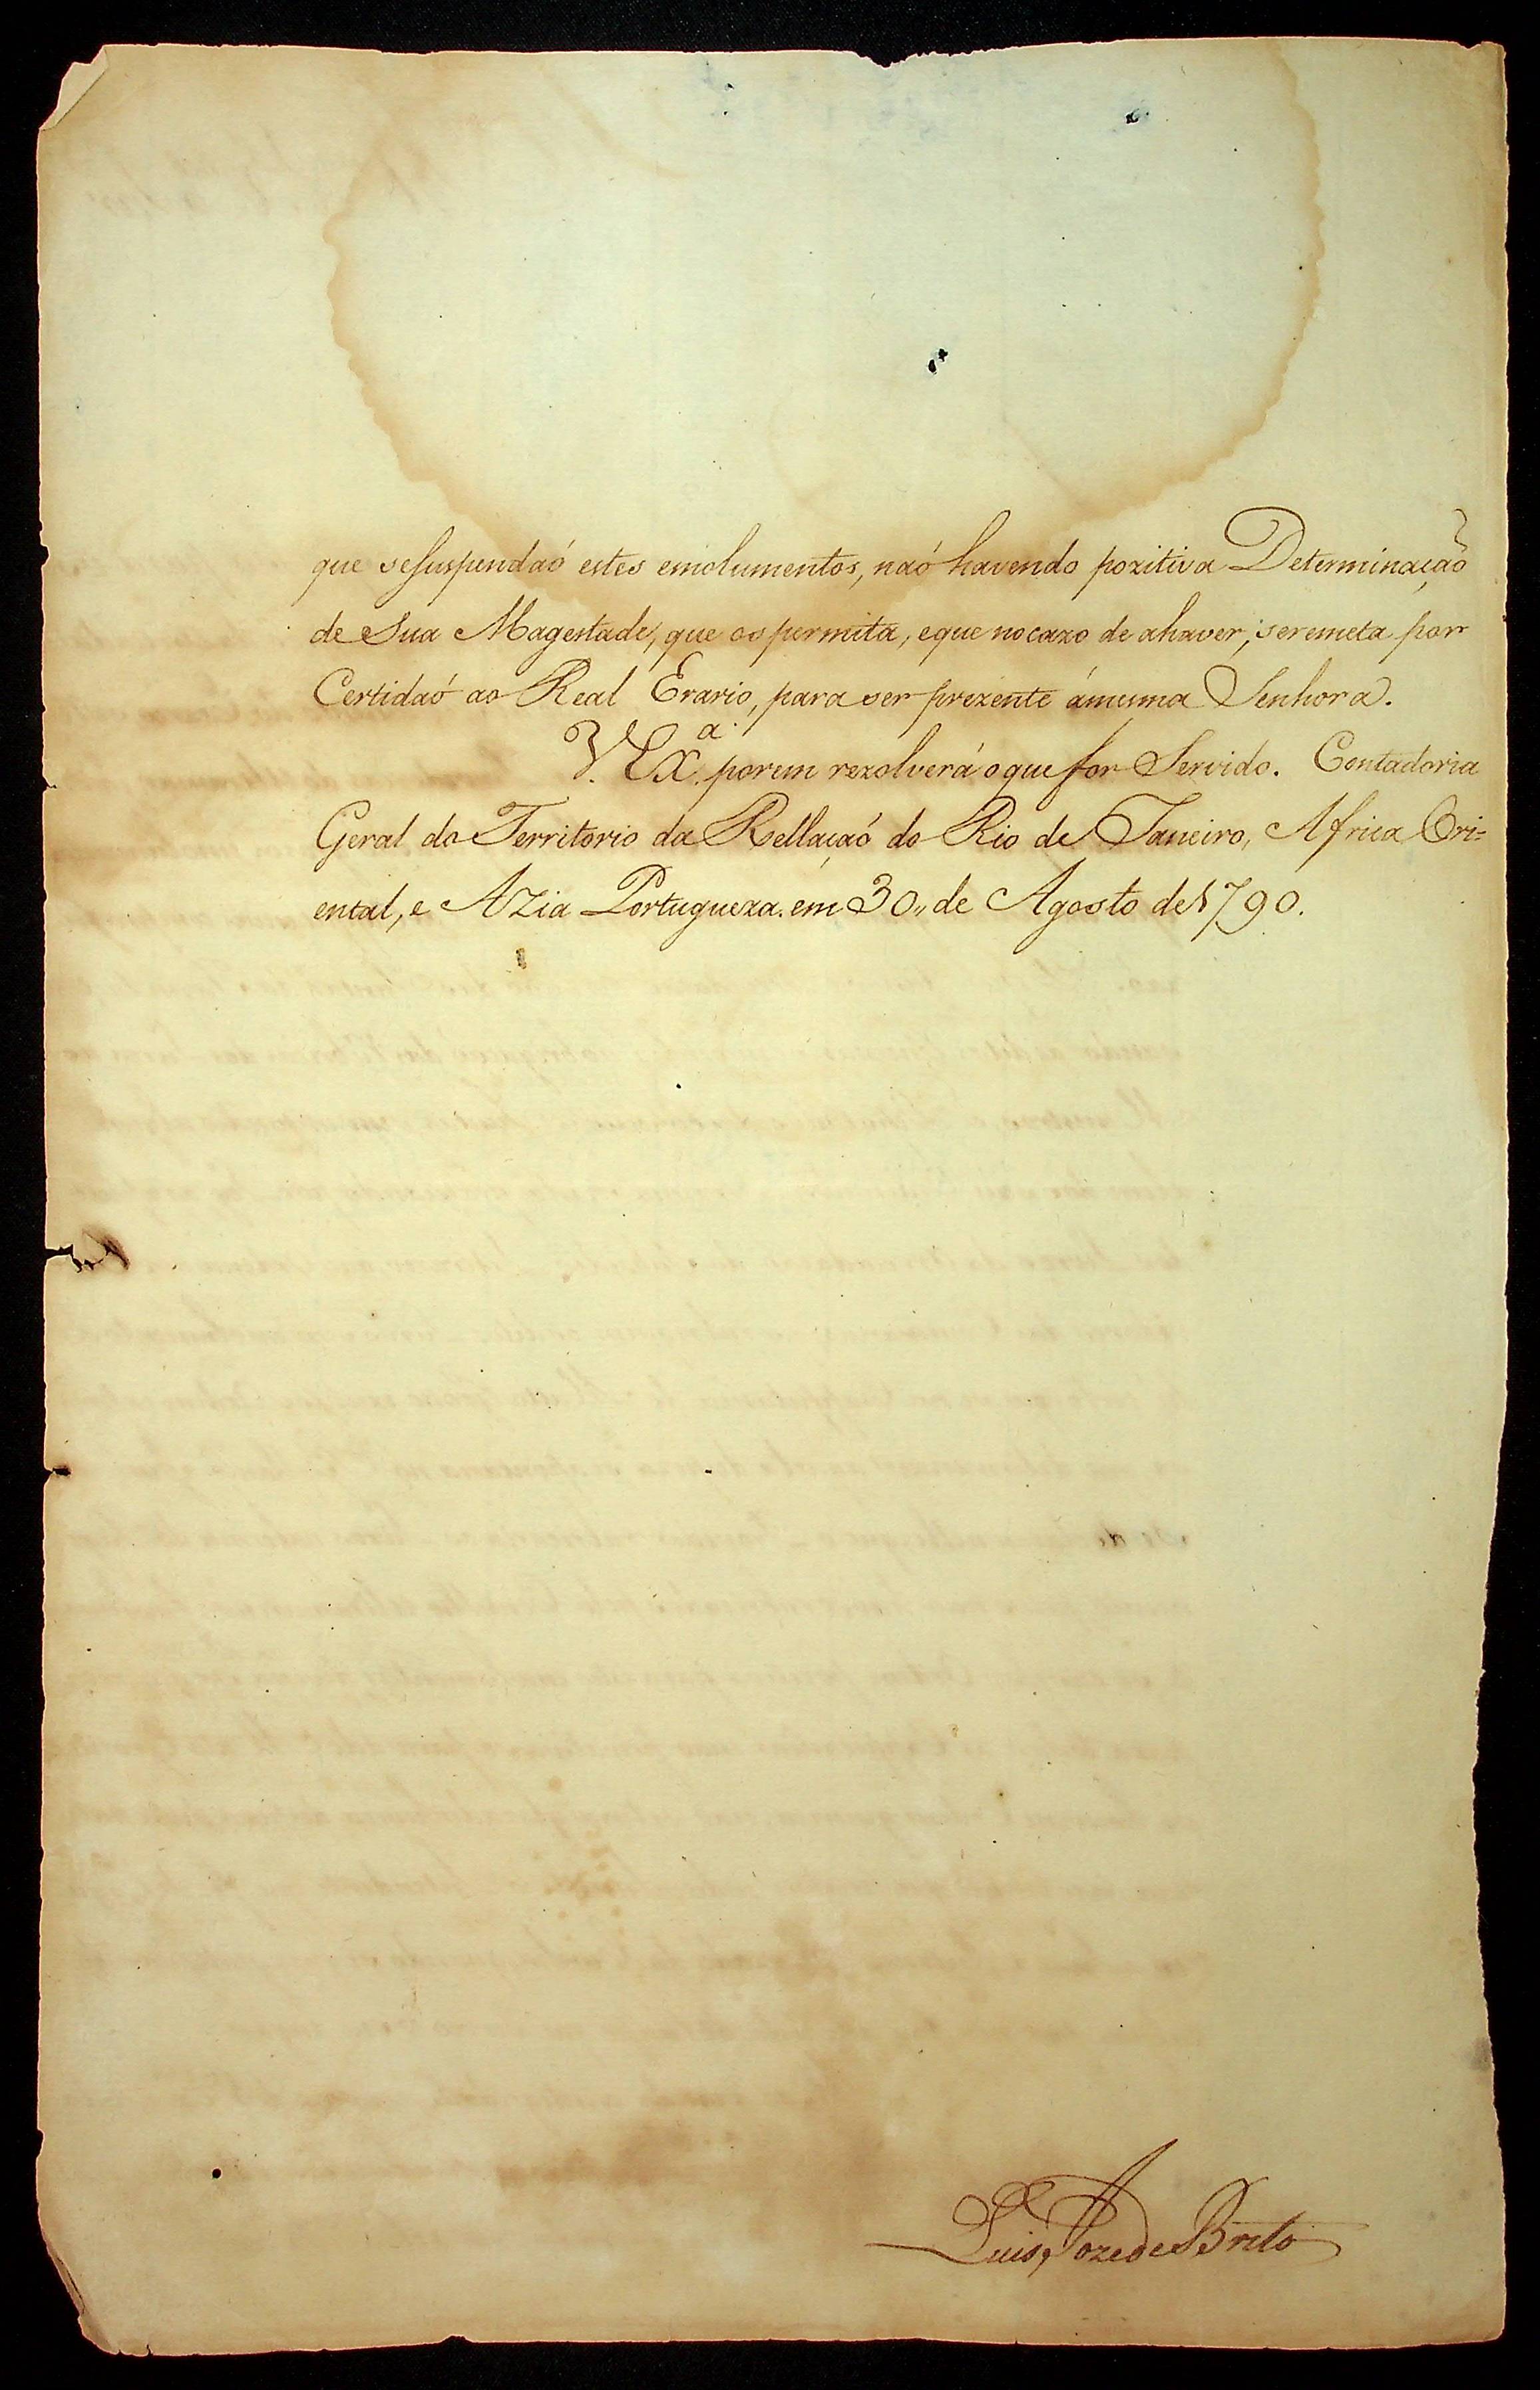 que sesuspendaó estes emolumentos, naó havendo pozitiva Determinação
de Sua Magestade, que os permita, eque nocazo de ahaver, seremeta por
Certidaó ao Real Erario, para ser prezente ámesma Senhora.
V. Ex.ª porem rezolverá oque for Servido. Contadoria
Geral do Territorio da Rellaçaó do Rio de Janeiro, Africa Ori=
ental, e Azia Portugueza. em 30,, de Agosto de 1790.
Luis Joze de Brito